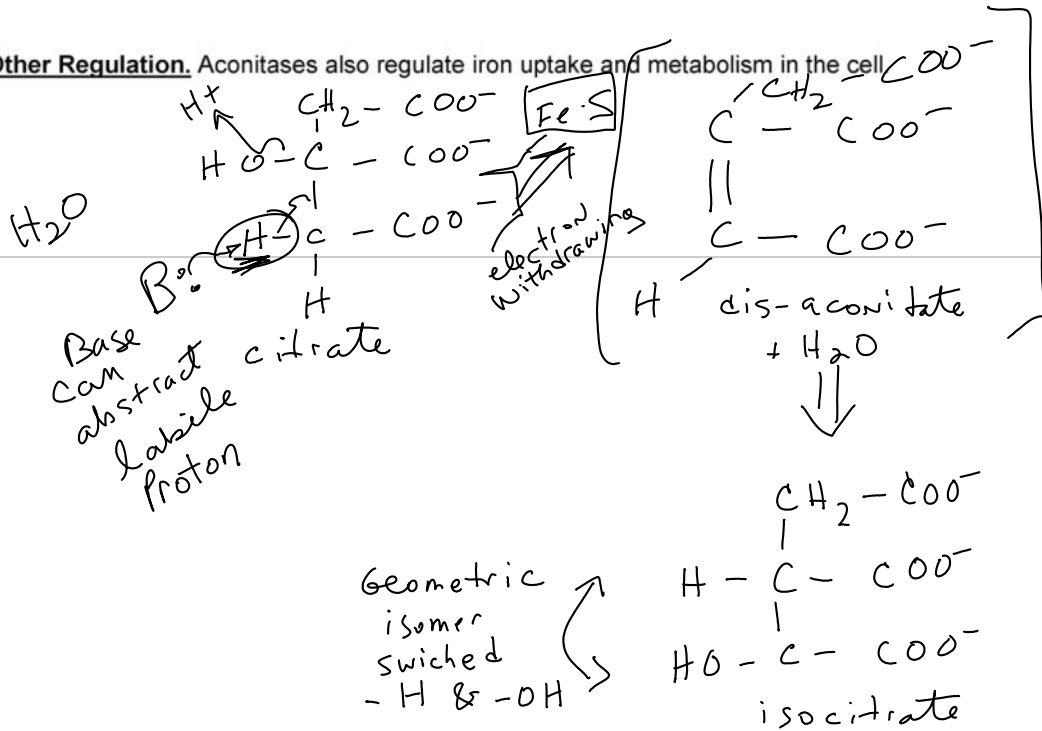 Other Regulation. Aconitases also regulate iron uptake and metabolism in the cell
H+
CH2 - COO-
HO - C - COO-
H - C - COO-
H
citrate
H2O
B:
Base
can
abstract
labile
Proton
Fe·S
electron
withdrawing
CH2 - COO-
C - COO-
||
C - COO-
H
cis-aconitate
+ H2O
⇓
CH2 - COO-
H - C - COO-
HO - C - COO-
isocitrate
Geometric
isomer
swiched
- H & -OH